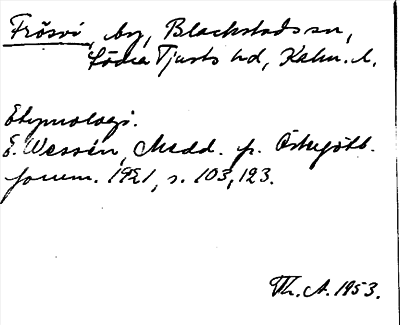 Frösvi, by, Blackstads sn,
Södra Tjusts hd, Kalm. l.
Etymologi.
E. Wessén, Medd. fr. Östergötl.
fornm. 1921, s. 103, 123.
Th. A. 1953.